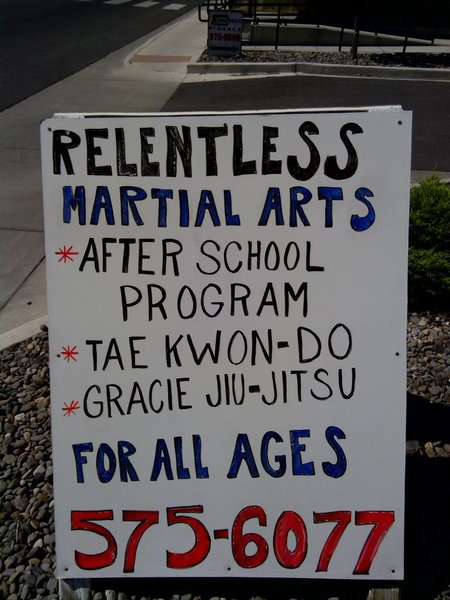 RELENTLESS
MARTIAL ARTS
* AFTER SCHOOL
PROGRAM
* TAE KWON-DO
* GRACIE JIU-JITSU
FOR ALL AGES
575-6077